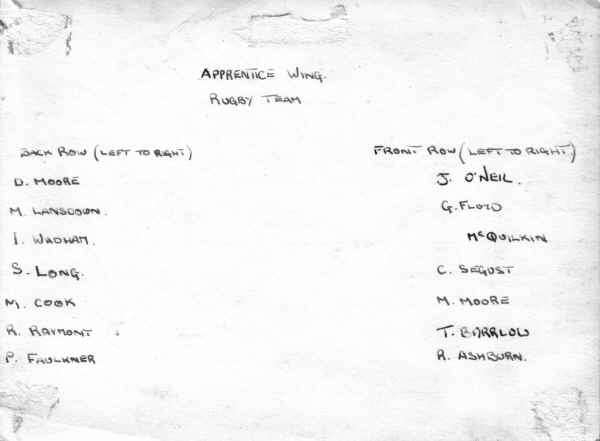 APPRENTICE WING.
RUGBY TEAM
BACK ROW (LEFT TO RIGHT)
D. MOORE
M. LANSDOWN.
I. WADHAM.
S. LONG.
M. COOK
R. RAYMONT
P. FAULKNER
FRONT ROW (LEFT TO RIGHT)
J. O'NEIL.
G. FLOYD
McQUILKIN
C. SEGUST
M. MOORE
T. BARRLOW
R. ASHBURN.